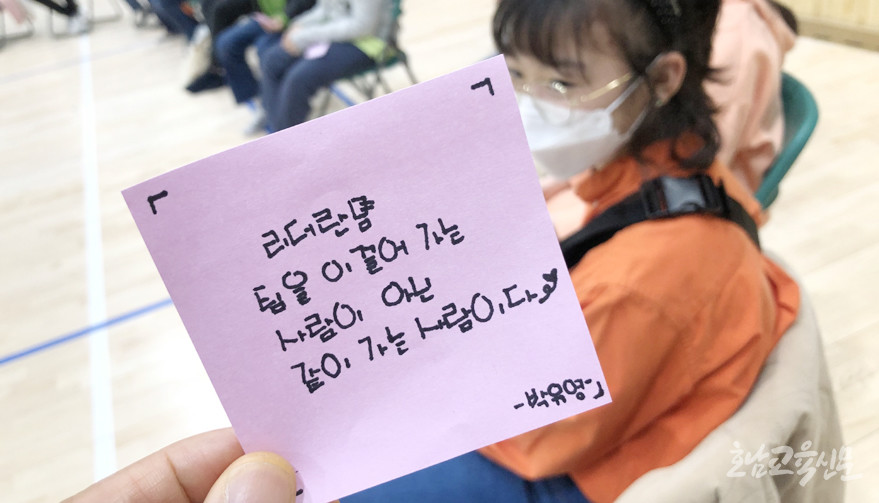 리더란
팀을 이끌어 가는
사람이 아닌
같이 가는 사람이다
-박유영-
호남교육신문